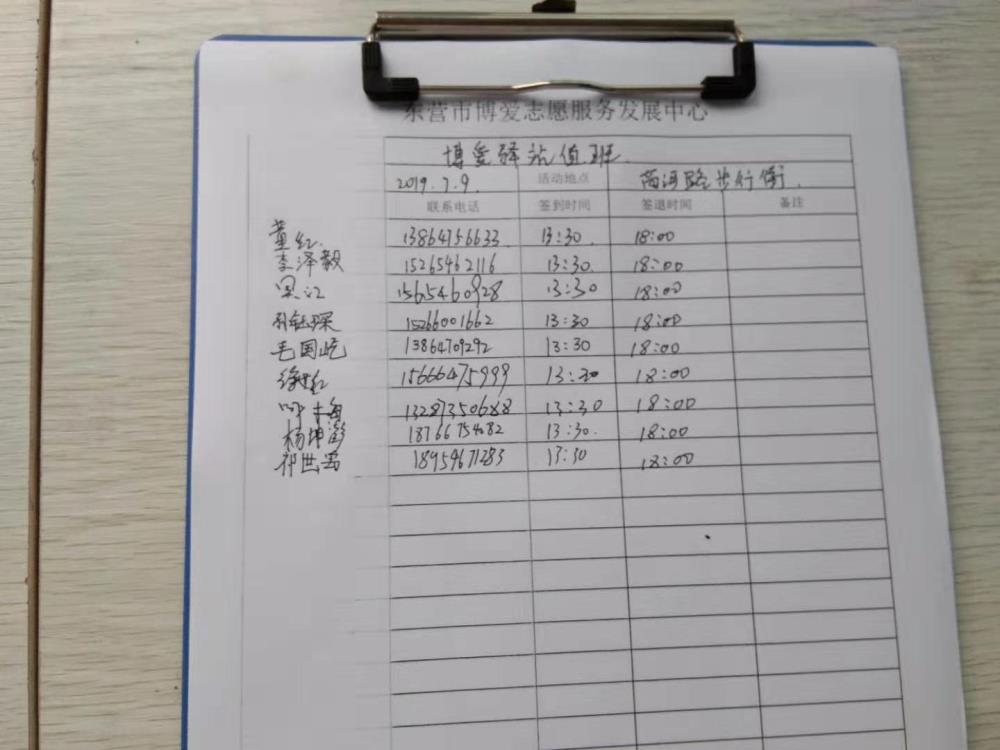 东营市博爱志愿服务发展中心
博爱驿站值班
2019.7.9. 活动地点 商河路步行街.
联系电话 签到时间 签退时间 备注
董红. 13864756633 13:30. 18:00
李泽毅 15265462116 13:30. 18:00
1565460928 13:30 18:00
15266001662 13:30 18:00
毛国屹 13864709292 13:30 18:00
15666475999 13:30 18:00
13287350688 13:30 18:00
杨坤澎 18766754082 13:30. 18:00
祁世禹 18959671283 13:30 18:00